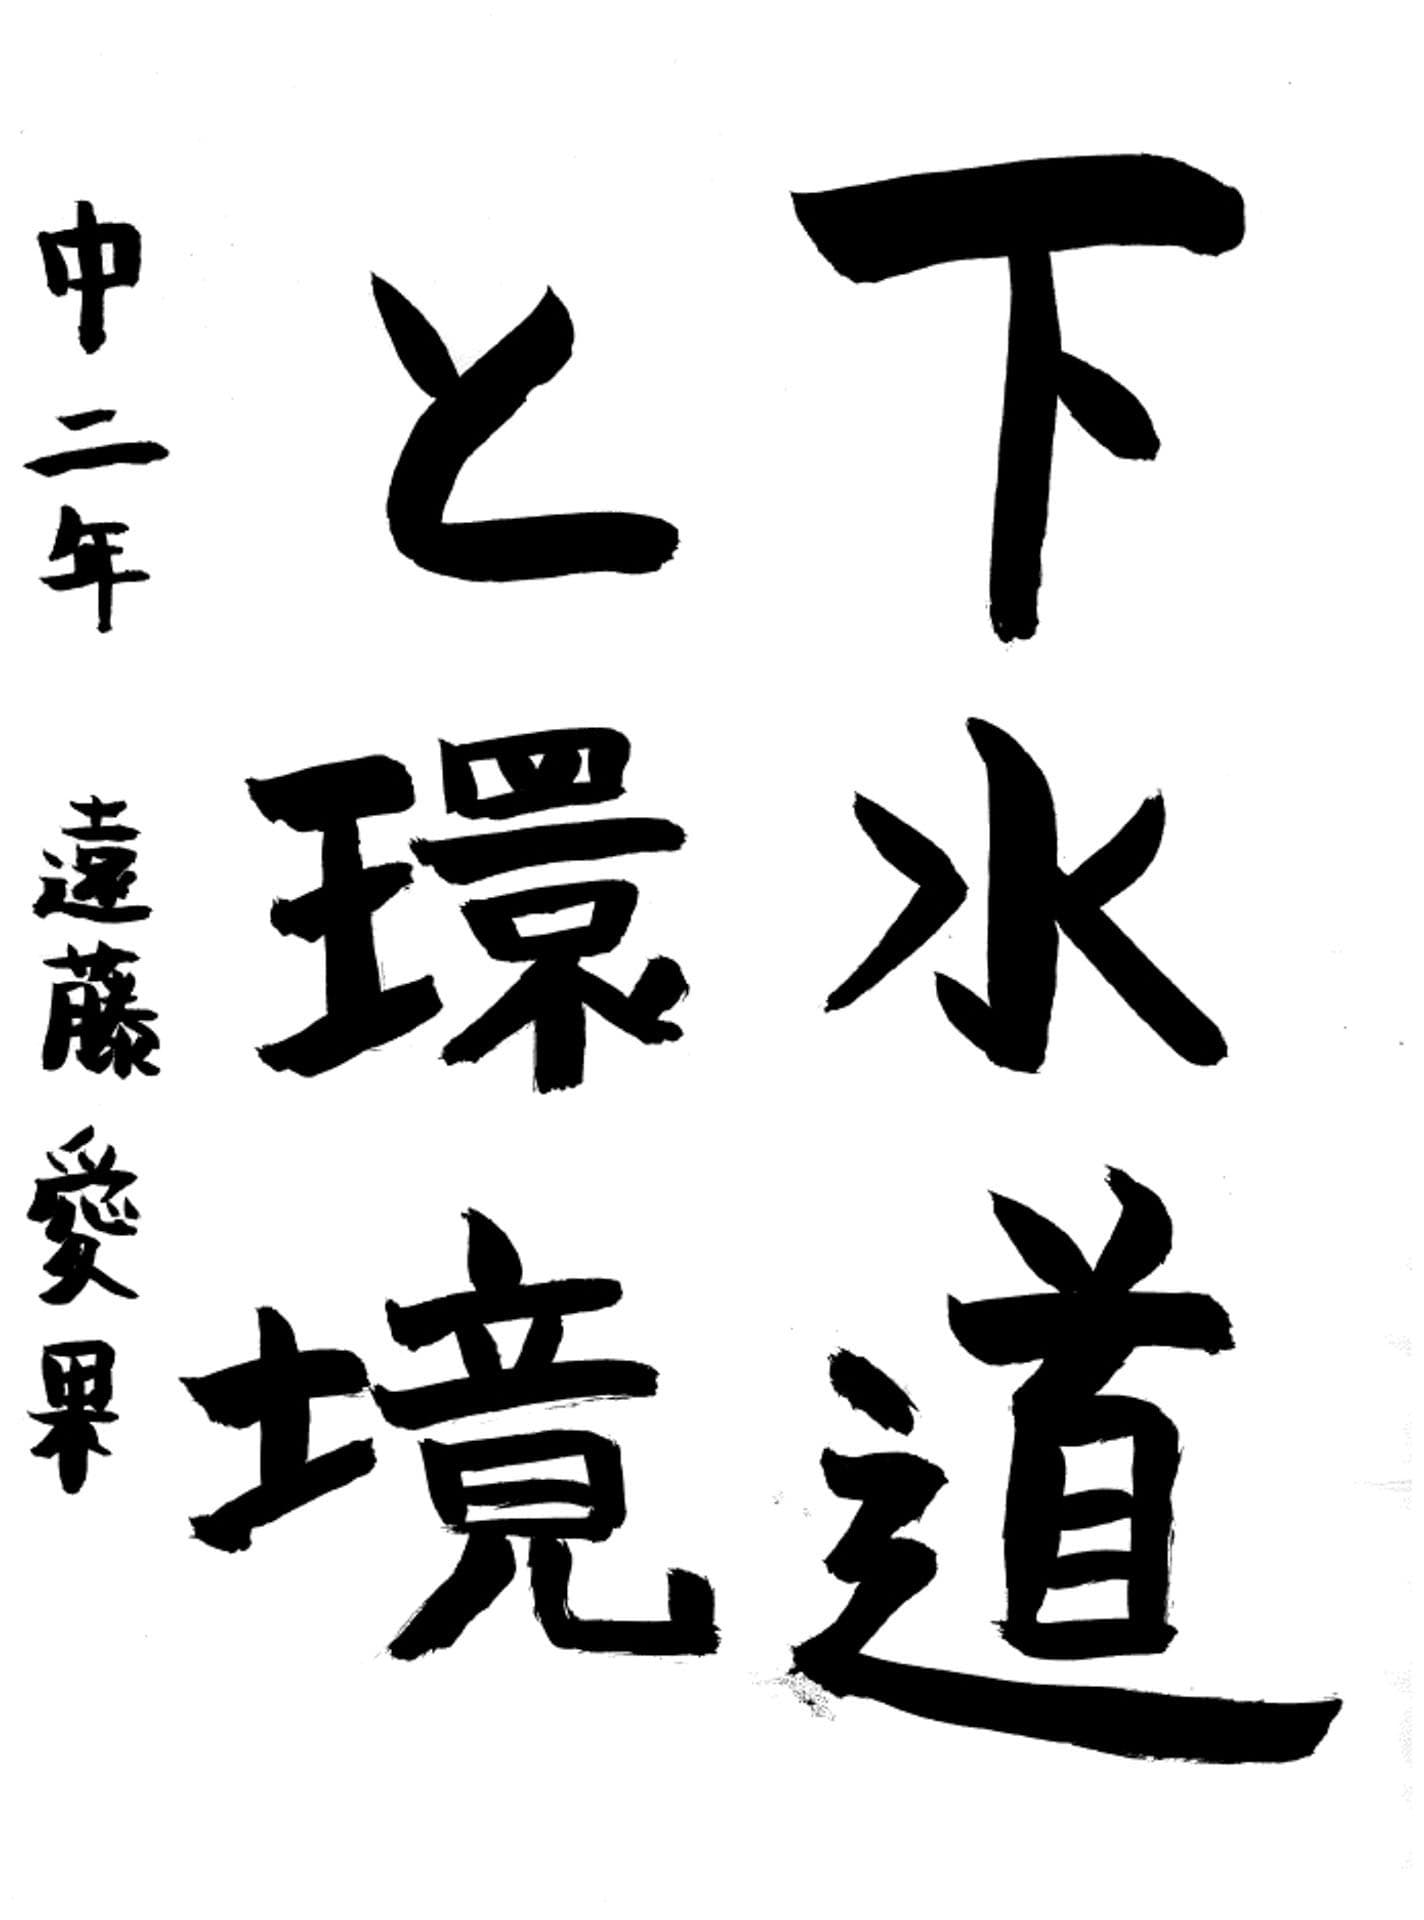 下水道
と環境
中二年 遠藤愛果